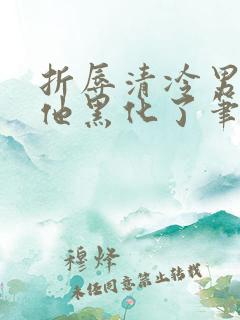 折辱清冷男
他黑化了笔
穆烽
未经同意禁止转载